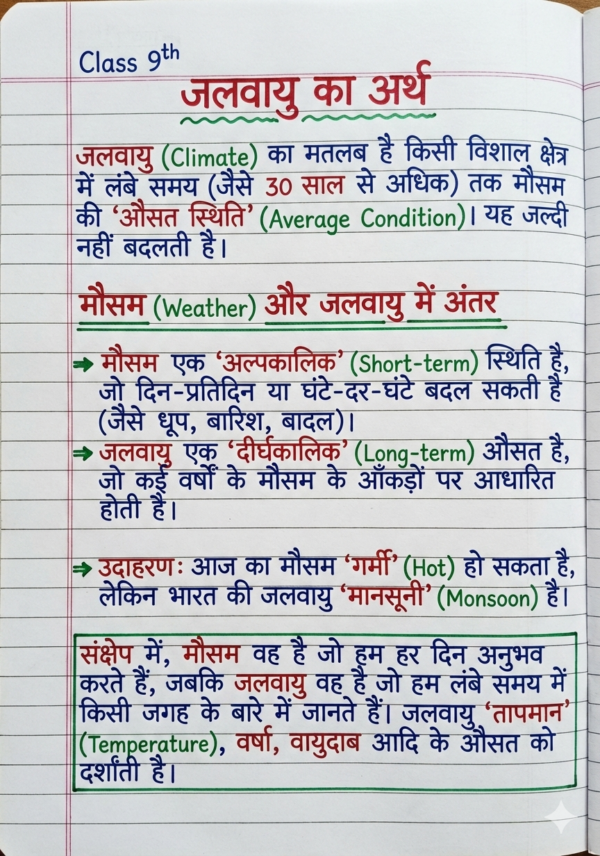 Class 9th
जलवायु का अर्थ
जलवायु (Climate) का मतलब है किसी विशाल क्षेत्र
में लंबे समय (जैसे 30 साल से अधिक) तक मौसम
की ‘औसत स्थिति’ (Average Condition)। यह जल्दी
नहीं बदलती है।
मौसम (Weather) और जलवायु में अंतर
➔ मौसम एक ‘अल्पकालिक’ (Short-term) स्थिति है,
जो दिन-प्रतिदिन या घंटे-दर-घंटे बदल सकती है
(जैसे धूप, बारिश, बादल)।
➔ जलवायु एक ‘दीर्घकालिक’ (Long-term) औसत है,
जो कई वर्षों के मौसम के आँकड़ों पर आधारित
होती है।
➔ उदाहरण: आज का मौसम ‘गर्मी’ (Hot) हो सकता है,
लेकिन भारत की जलवायु ‘मानसूनी’ (Monsoon) है।
संक्षेप में, मौसम वह है जो हम हर दिन अनुभव
करते हैं, जबकि जलवायु वह है जो हम लंबे समय में
किसी जगह के बारे में जानते हैं। जलवायु ‘तापमान’
(Temperature), वर्षा, वायुदाब आदि के औसत को
दर्शाती है।